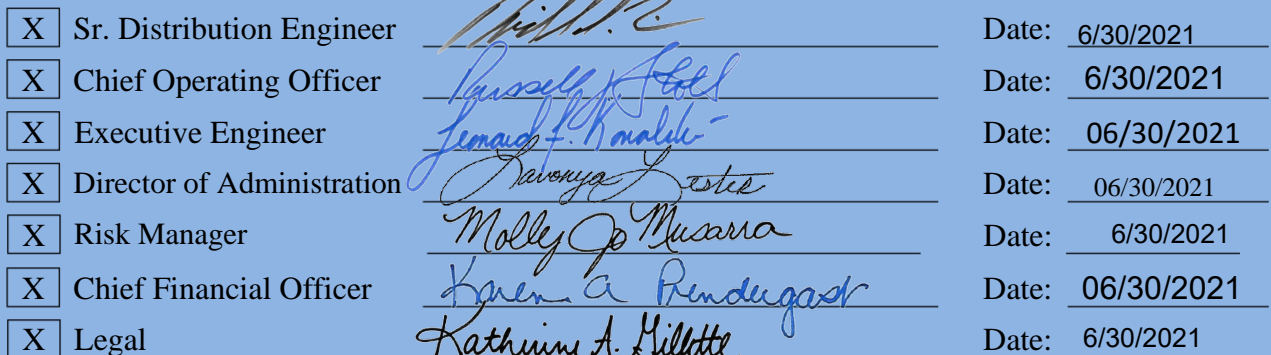 X Sr. Distribution Engineer Date: 6/30/2021
X Chief Operating Officer Russell J Stoll Date: 6/30/2021
X Executive Engineer Leonard F. Date: 06/30/2021
X Director of Administration Lavonya Lester Date: 06/30/2021
X Risk Manager Molly Jo Musarra Date: 6/30/2021
X Chief Financial Officer Karen A Prendergast Date: 06/30/2021
X Legal Katherine A. Gillette Date: 6/30/2021